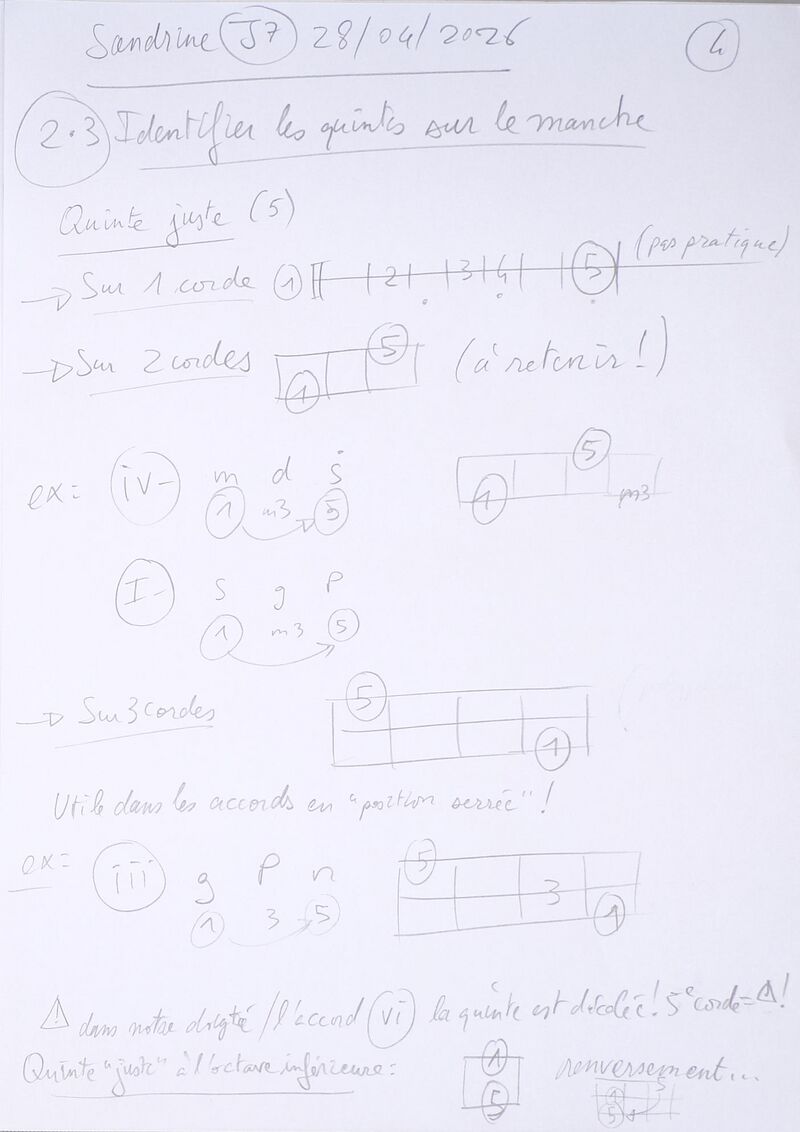 Sandrine J7 28/04/2026 4
2.3 Identifier les quintes sur le manche
Quinte juste (5)
→ Sur 1 corde 1 2 3 4 5 (pas pratique)
→ Sur 2 cordes 1 5 (à retenir!)
ex = iv- m d ṡ 5
1 m3 5 1 m3
I- S g P
1 m3 5
→ Sur 3 cordes 5
1
Utile dans les accords en "position serrée"!
ex = iii g P n 5
1 3 5 3 1
⚠ dans notre doigté / l'accord vi la quinte est décalée! 5e corde = ⚠!
Quinte "juste" à l'octave inférieure : 1 renversement...
5 1 5
5